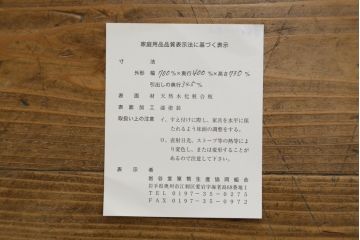 家庭用品品質表示法に基づく表示
寸 法
外形 幅 1700 %×奥行 400 %×高さ 770 %
引出しの奥行 345 %
表 面 材 天然木化粧合板
表面加工 漆塗装
取扱い上の注意 イ. すえ付けに際し、家具を水平に保
たれるよう床面の調整をする。
ロ. 直射日光、ストーブ等の熱等によ
り変色し、または変形することが
あるので注意して下さい。
表 示 者
岩谷堂箪笥生産協同組合
岩手県奥州市江刺区愛宕字海老島68番地1
TEL 0197-35-0275
FAX 0197-35-0972